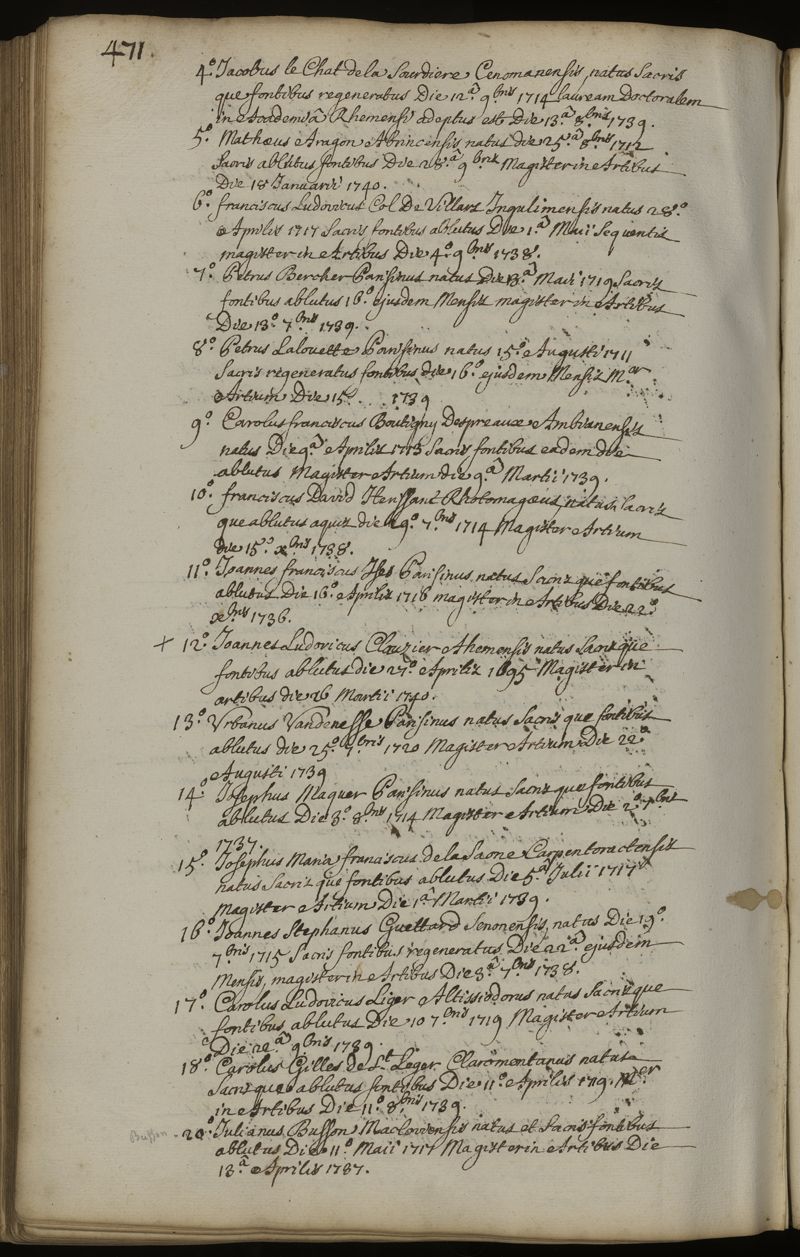 471.
4.° Jacobus le Chat de la Sourdiere Cenomanensis, natus Sacris
que fontibus regeneratus Die 12.ª 9.bris 1714 lauream Doctoralem
in Academiâ Rhemensi adeptus est Die 13.ª 8.bris 1739.
5.° Mathæus Aragon Abrincensis natus die 25.ª 8.bris 1712
Sacris ablutus fontibus Die 28.ª 9.bris Magister in Artibus
Die 18 Januarii 1740.
6.° franciscus Ludovicus Col De Villars Ingulimensis natus 28.°
Aprilis 1717 Sacris fontibus ablutus Die 1.ª Maii Sequentis
magister in Artibus Die 4.° 9.bris 1738.
7.° Petrus Bercher Parisinus natus Die 13.ª Maii 1719 Sacris
fontibus ablutus 16.° ejusdem Mensis magister in Artibus
Die 13.° 7.bris 1739.
8.° Petrus Lalouette Parisinus natus 15.° Augusti 1711
Sacris regeneratus fontibus die 16.° ejusdem Mensis M.er
Artium Die 15.° . . . 1739
9.° Carolus franciscus Boutigny Despreaux Ambianensis
natus Die 9.ª Aprilis 1713 Sacris fontibus eadem die
ablutus Magister Artium die 9.ª Martii 1739.
10.° franciscus David Rhotomagæus, natus, sacris
que ablutus aquis die 29.° 7.bris 1714 Magister Artium
die 15.° x.bris 1738.
11.° Joannes franciscus Parisinus, natus Sacris que fontibus
ablutus Die 16.° Aprilis 1716 magister in Artibus Die 22.°
x.bris 1736.
+ 12.° Joannes Ludovicus Clauzier natus Sacrisque
fontibus ablutus die 27.° Aprilis 1695 Magister in
artibus die 26 Martii 1740.
13.° Urbanus Vandenesse Parisinus natus Sacris que fontibus
ablutus die 25.° 7.bris 1720 Magister Artium Die 22ª
Augusti 1739
14.° Josephus Maquer Parisinus natus Sacris que fontibus
ablutus Die 3.° 8.bris 1714 Magister Artium Die 2.° 7.bris
1737.
15.° Josephus Maria franciscus de la Saone Carpentoractensis
natus Sacris que fontibus ablutus Die 5.ª Julii 1717
Magister Artium Die 1.ª Martii 1739.
16.° Joannes Stephanus Guettard Senonensis, natus Die 19.°
7.bris 1715 Sacris fontibus regeneratus Die 22.ª ejusdem
Mensis, magister in Artibus Die 3.ª 7.bris 1738.
17.° Carolus Ludovicus Liger Altissiodorus natus Sacris que
fontibus ablutus Die 10 7.bris 1719 Magister Artium
Die 22.ª 9.bris 1739.
18.° Carolus Gilles de S.t Leger Claromontanus natus
Sacris que ablutus fontibus Die 11.° Aprilis 1719. M.er
in Artibus Die 11.° 8.bris 1739.
Busson - 20.° Julianus Busson Macloviensis natus et Sacris fontibus
ablutus Die 11.° Maii 1717 Magister in Artibus Die
13.ª Aprilis 1737.